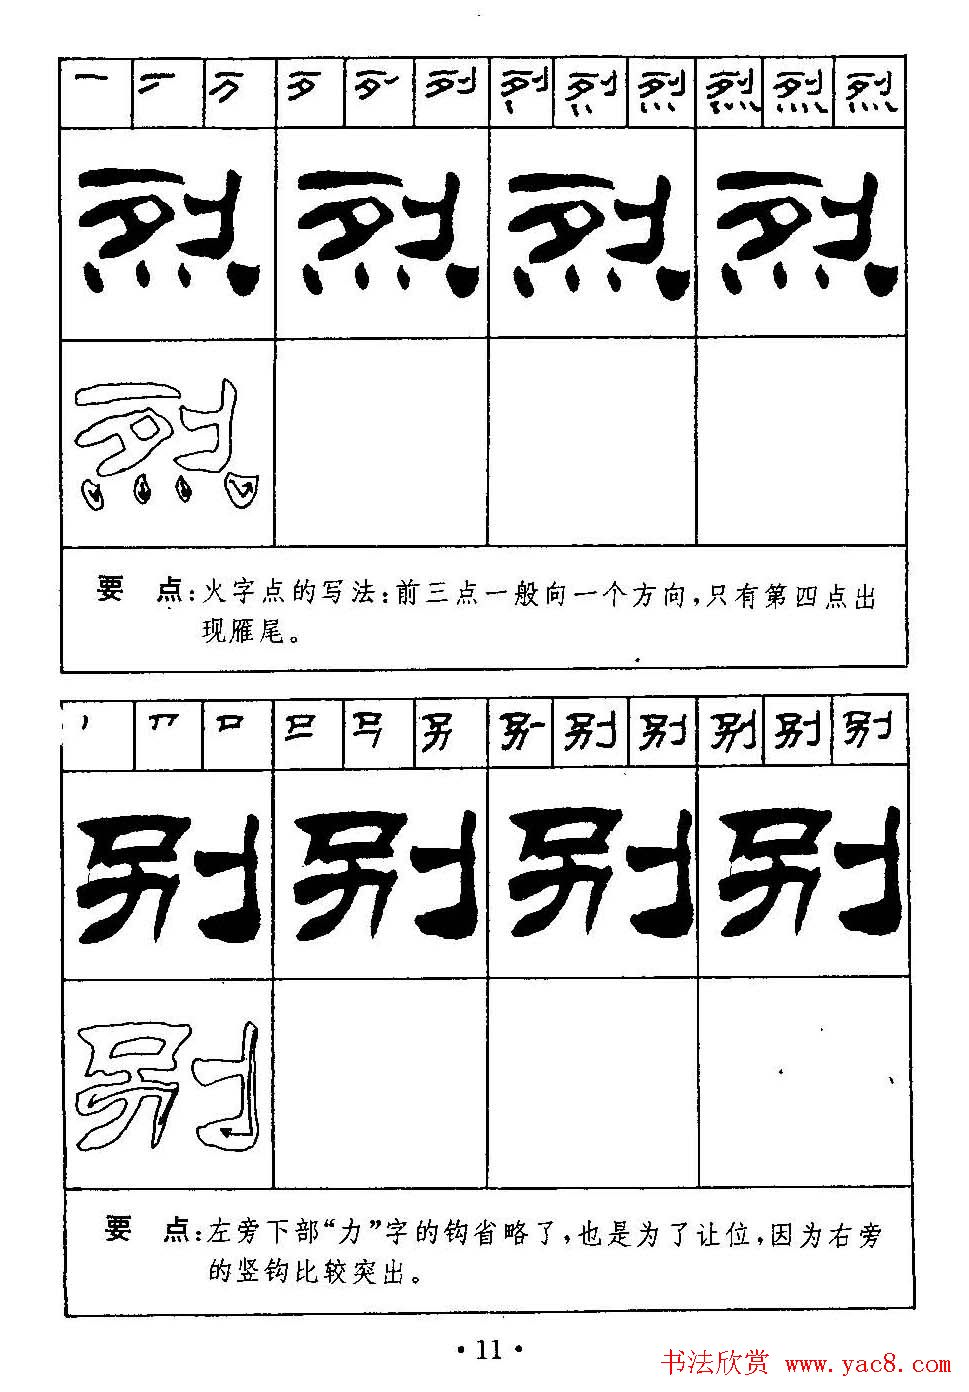 烈 烈 烈 烈
烈
要 点:火字点的写法:前三点一般向一个方向,只有第四点出
现雁尾。
别 别 别 别
别
要 点:左旁下部“力”字的钩省略了,也是为了让位,因为右旁
的竖钩比较突出。
·11·
书法欣赏 www.yac8.com